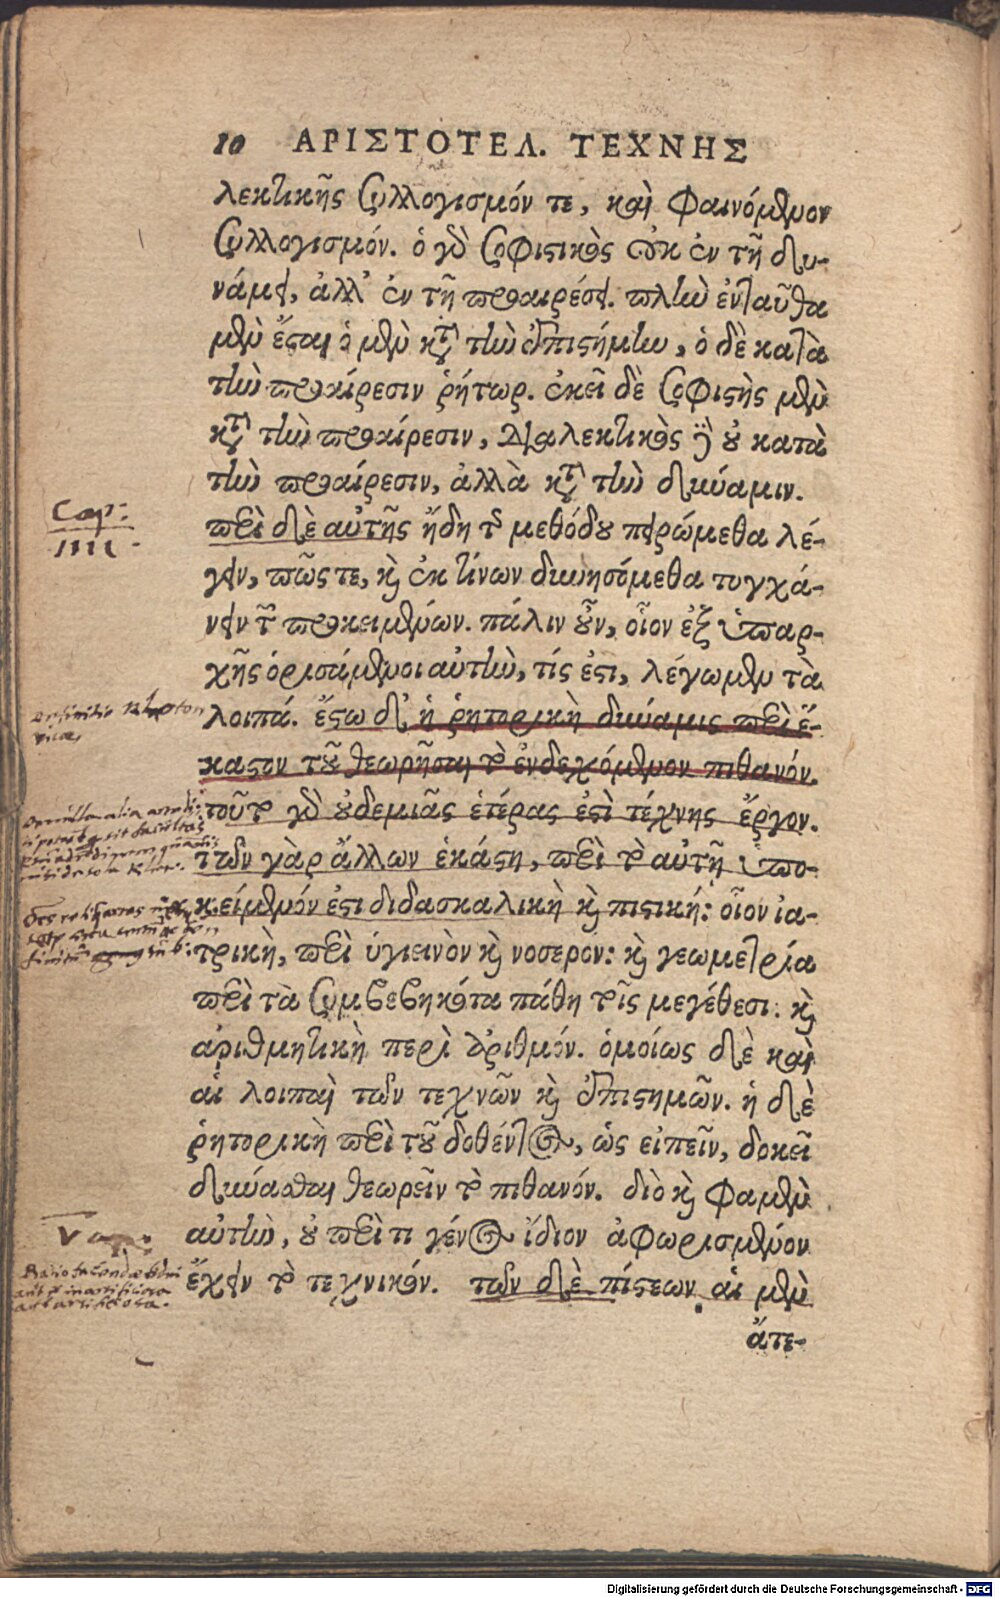 10 ΑΡΙΣΤΟΤΕΛ. ΤΕΧΝΗΣ
λεκτικῆς συλλογισμόν τε, καὶ φαινόμενον
συλλογισμόν. ὁ γὰρ σοφιστικὸς οὐκ ἐν τῇ δυ-
νάμει, ἀλλ' ἐν τῇ προαιρέσει. πλὴν ἐνταῦθα
μὲν ἔσται ὁ μὲν κατὰ τὴν ἐπιστήμην, ὁ δὲ κατὰ
τὴν προαίρεσιν ῥήτωρ. ἐκεῖ δὲ σοφιστὴς μὲν
κατὰ τὴν προαίρεσιν, διαλεκτικὸς δὲ οὐ κατὰ
τὴν προαίρεσιν, ἀλλὰ κατὰ τὴν δύναμιν.
Cap:
IIII.
περὶ δὲ αὐτῆς ἤδη τῆς μεθόδου πειρώμεθα λέ-
γειν, πῶς τε, καὶ ἐκ τίνων δυνησόμεθα τυγχά-
νειν τῶν προκειμένων. πάλιν οὖν, οἷον ἐξ ὑπαρ-
χῆς ὁρισάμενοι αὐτὴν, τίς ἐστι, λέγωμεν τὰ
λοιπά. ἔστω δὲ ἡ ῥητορικὴ δύναμις περὶ ἕ-
καστον τοῦ θεωρῆσαι τὸ ἐνδεχόμενον πιθανόν.
τοῦτο γὰρ οὐδεμιᾶς ἑτέρας ἐστὶ τέχνης ἔργον.
τῶν γὰρ ἄλλων ἑκάστη, περὶ τὸ αὐτῇ ὑπο-
κείμενόν ἐστι διδασκαλικὴ καὶ πιστική: οἷον ἰα-
τρικὴ, περὶ ὑγιεινὸν καὶ νοσερον: καὶ γεωμετρία
περὶ τὰ συμβεβηκότα πάθη τοῖς μεγέθεσι: καὶ
ἀριθμητικὴ περὶ ἀριθμόν. ὁμοίως δὲ καὶ
αἱ λοιπαὶ τῶν τεχνῶν καὶ ἐπιστημῶν. ἡ δὲ
ῥητορικὴ περὶ τοῦ δοθέντος, ὡς εἰπεῖν, δοκεῖ
δύνασθαι θεωρεῖν τὸ πιθανόν. διὸ καὶ φαμὲν
αὐτὴν, οὐ περὶ τι γένος ἴδιον ἀφωρισμένον
ἔχειν τὸ τεχνικόν. τῶν δὲ πίστεων αἱ μὲν
ἄτε-
Digitalisierung gefördert durch die Deutsche Forschungsgemeinschaft - DFG